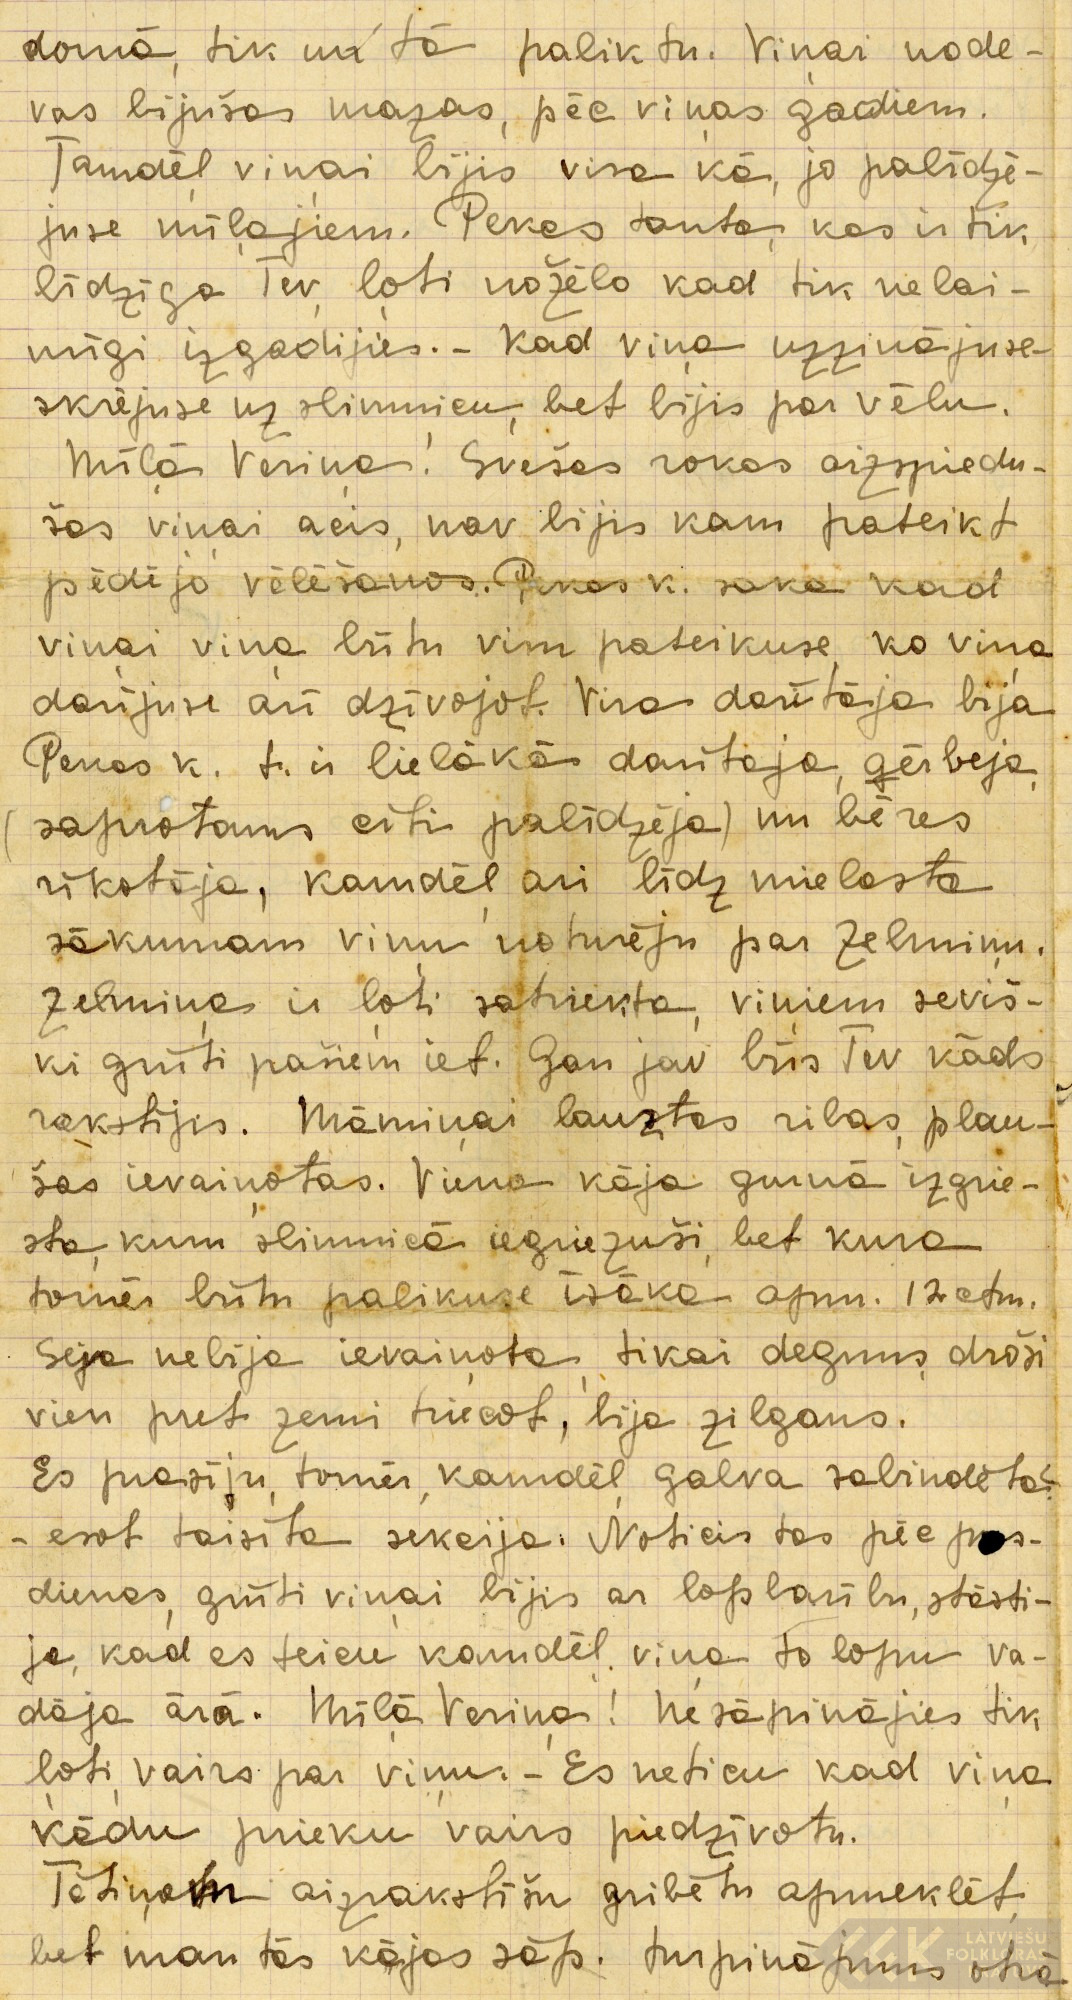 domā, tik un tā paliktu. Viņai node-
vas bijušas mazas, pēc viņas gadiem.
Tamdēļ viņai bijis visa kā, jo palīdzē-
juse mīļajiem. Pekas tante, kas ir tik
līdzīga Tev, ļoti nožēlo kad tik nelai-
mīgi izgadijies. - Kad viņa uzzinājuse
skrējuse uz slimnicu, bet bijis par vēlu.
Mīļā Veriņa! Svešas rokas aizspiedu-
šas viņai acis, nav bijis kam pateikt
pēdējo vēlēšanos. Pekas k. saka kad
viņai viņa būtu visu pateikuse, ko viņa
darijuse arī dzīvojot. Visa darītāja bija
Pekas k. t. ir lielākā darītaja, gērbeja,
(saprotams citi palīdzēja) un bēres
rīkotāja, kamdēļ ari līdz mielasta
sākumam viņu noturēju par Zelmiņu.
Zelmiņa ir ļoti satriekta, viņiem seviš-
ki grūti pašiem iet. Gan jav būs Tev kāds
rakstījis. Māmiņai lauztas ribas, plau-
šas ievainotas. Viena kāja gurnā izgrie-
sta, kuru slimnicā iegriezuši, bet kura
tomēr būtu palikuse īsāka apm. 12 ctm.
Seja nebija ievainota, tikai deguns, droši
vien pret zemi triecot, bija zilgans.
Es prasīju, tomēr, kamdēļ galva sabindēta?
- esot taisīta sekcija. Noticis tas pēc pus-
dienas, grūti viņai bijis ar lopbarību, stāsti-
ja, kad es teicu kamdēļ viņa to lopu va-
dāja ārā. Mīļā Veriņa! Nesāpinājies tik
ļoti vairs par viņu. - Es neticu kad viņa
kādu prieku vairs piedzīvotu.
aizrakstīšu gribētu apmeklēt,
bet man tās kājas sāp. turpinājums otrā
LATVIEŠU
FOLKLORAS